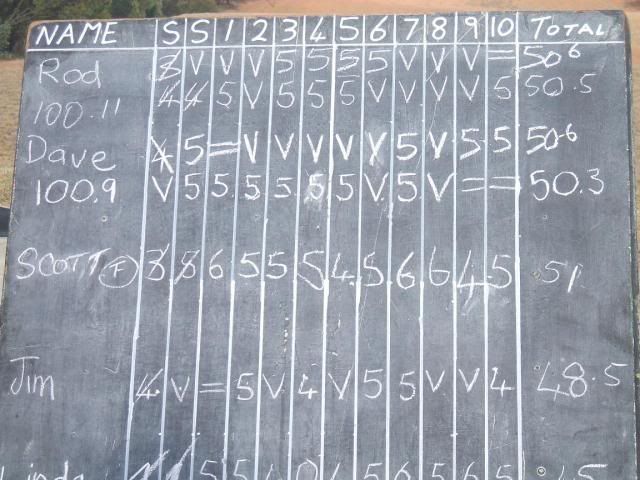 NAME S S 1 2 3 4 5 6 7 8 9 10 TOTAL
Rod 3 V V V 5 5 5 5 V V V = 50.6
100.11 4 4 5 V 5 5 5 V V V 5 50.5
Dave 4 5 = V V V V V 5 V 5 5 50.6
100.9 V 5 5 5 5 5 5 V 5 V = = 50.3
SCOTT F 3 8 6 5 5 5 4 5 6 6 4 5 51
Jim 4 V = 5 V 4 V 5 5 V V 4 48.5